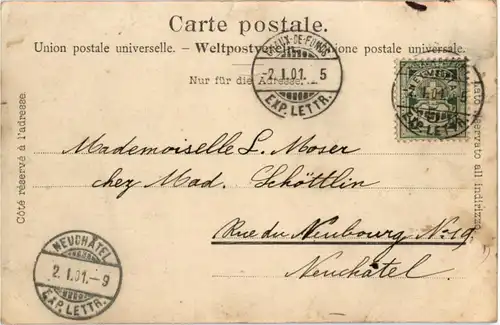 Carte postale.
Union postale universelle. – Weltpostverein – Unione postale universale.
Nur für die Adresse.
CHAUX-DE-FONDS
-2. I. 01. 5
EXP. LETTR.
HELVETIA
EXP. LETTR.
Côté réservé à l'adresse.
Lato riservato all indirizzo.
Mademoiselle L. Moser
chez Mad. Schöttlin
Rue du Neubourg No. 19.
Neuchâtel.
NEUCHÂTEL
2. I. 01. – 9
EXP. LETTR.